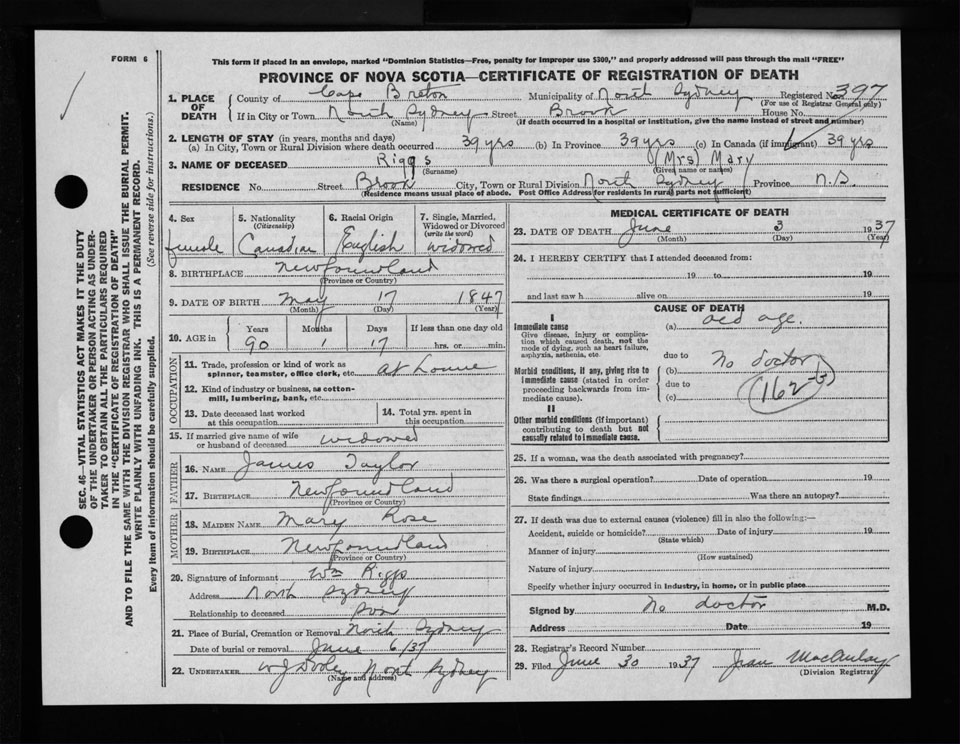 FORM 6
This form if placed in an envelope, marked "Dominion Statistics—Free, penalty for improper use $300," and properly addressed will pass through the mail "FREE"
PROVINCE OF NOVA SCOTIA—CERTIFICATE OF REGISTRATION OF DEATH
1. PLACE OF DEATH
County of Cape Breton Municipality of North Sydney Registered No. 397
(For use of Registrar General only)
If in City or Town North Sydney Street Brook House No.
(Name) (If death occurred in a hospital or institution, give the name instead of street and number)
2. LENGTH OF STAY (in years, months and days)
(a) In City, Town or Rural Division where death occurred 39 yrs (b) In Province 39 yrs (c) In Canada (if immigrant) 39 yrs
3. NAME OF DECEASED Riggs (Mrs) Mary
(Surname) (Given name or names)
RESIDENCE No. Street Brook City, Town or Rural Division North Sydney Province N.S.
(Residence means usual place of abode. Post Office Address for residents in rural parts not sufficient)
4. Sex
female
5. Nationality
(Citizenship)
Canadian
6. Racial Origin
English
7. Single, Married, Widowed or Divorced
(write the word)
widowed
8. BIRTHPLACE Newfoundland
(Province or Country)
9. DATE OF BIRTH May 17 1847
(Month) (Day) (Year)
10. AGE in
Years Months Days If less than one day old
90 1 17 hrs. or min.
OCCUPATION
11. Trade, profession or kind of work as spinner, teamster, office clerk, etc. at home
12. Kind of industry or business, as cotton-mill, lumbering, bank, etc.
13. Date deceased last worked at this occupation
14. Total yrs. spent in this occupation
15. If married give name of wife or husband of deceased widowed
FATHER
16. NAME James Taylor
17. BIRTHPLACE Newfoundland
(Province or Country)
MOTHER
18. MAIDEN NAME Mary Rose
19. BIRTHPLACE Newfoundland
(Province or Country)
20. Signature of informant Wm Riggs
Address North Sydney
Relationship to deceased Son
21. Place of Burial, Cremation or Removal North Sydney
Date of burial or removal June 6/37
22. UNDERTAKER W J Dooley North Sydney
(Name and address)
MEDICAL CERTIFICATE OF DEATH
23. DATE OF DEATH June 3 1937
(Month) (Day) (Year)
24. I HEREBY CERTIFY that I attended deceased from:
19 to 19
and last saw h alive on 19
CAUSE OF DEATH
I
Immediate cause
Give disease, injury or complication which caused death, not the mode of dying, such as heart failure, asphyxia, asthenia, etc.
(a) old age.
due to
Morbid conditions, if any, giving rise to immediate cause (stated in order proceeding backwards from immediate cause).
(b) No doctor
due to
(c) 162-b
II
Other morbid conditions (if important) contributing to death but not causally related to immediate cause.
25. If a woman, was the death associated with pregnancy?
26. Was there a surgical operation? Date of operation 19
State findings Was there an autopsy?
27. If death was due to external causes (violence) fill in also the following:—
Accident, suicide or homicide? Date of injury 19
(State which)
Manner of injury
(How sustained)
Nature of injury
Specify whether injury occurred in industry, in home, or in public place
Signed by No doctor M.D.
Address Date 19
28. Registrar's Record Number
29. Filed June 30 1937 Jean MacAulay
(Division Registrar)
SEC. 46—VITAL STATISTICS ACT MAKES IT THE DUTY
OF THE UNDERTAKER OR PERSON ACTING AS UNDER-
TAKER TO OBTAIN ALL THE PARTICULARS REQUIRED
IN THE "CERTIFICATE OF REGISTRATION OF DEATH"
AND TO FILE THE SAME WITH THE DIVISION REGISTRAR WHO SHALL ISSUE THE BURIAL PERMIT.
WRITE PLAINLY WITH UNFADING INK. THIS IS A PERMANENT RECORD.
Every item of information should be carefully supplied. (See reverse side for instructions.)